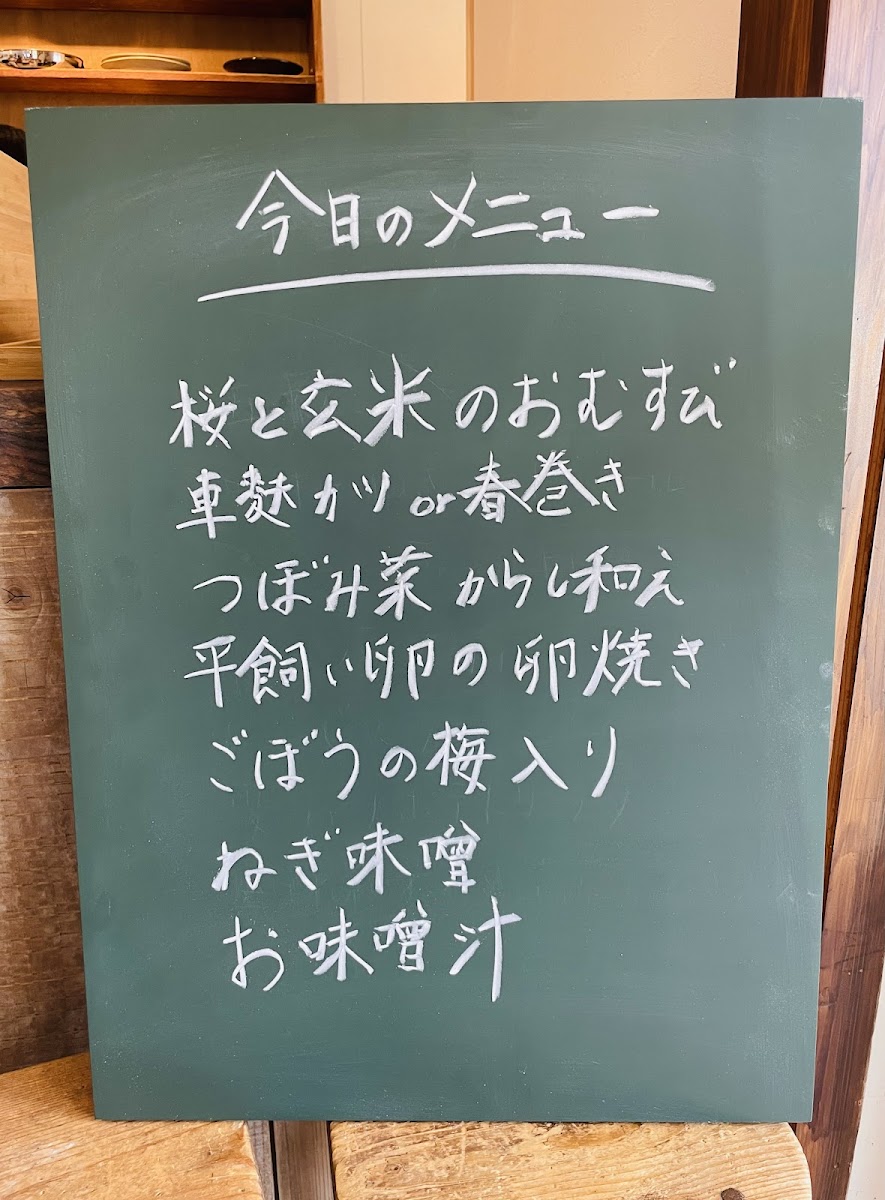 今日のメニュー
桜と玄米のおむすび
車麩カツ or 春巻き
つぼみ菜 からし和え
平飼い卵の卵焼き
ごぼうの梅入り
ねぎ味噌
お味噌汁